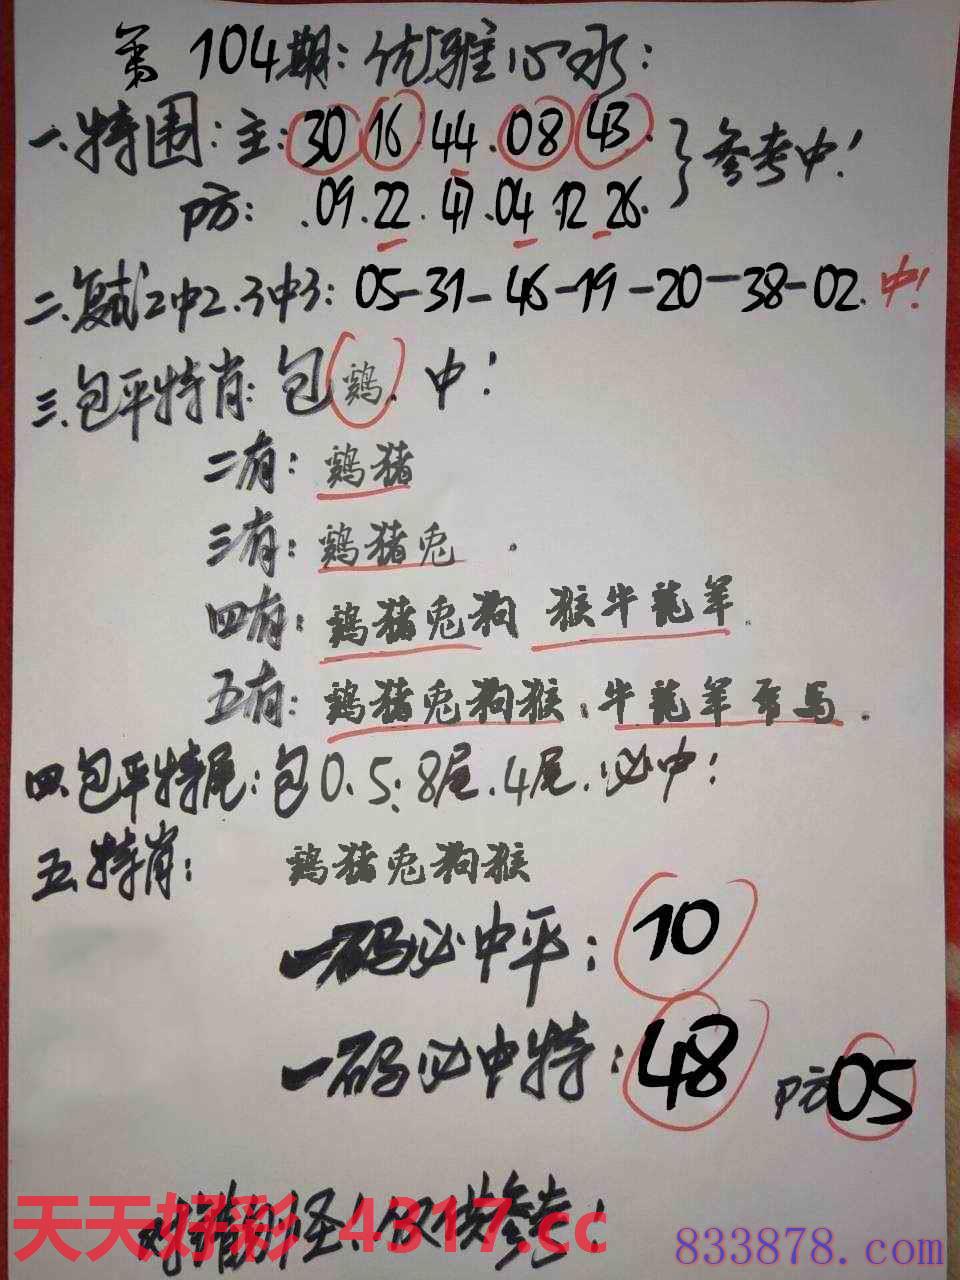 第104期:优雅心水:
一.特围:主:30 16 44.08 43.
防: .09.22.47.04 12 26.
}参考中!
二.复式2中2.3中3: 05-31-46-19-20-38-02. 中!
三.包平特肖:包鷄.中!
二有:鷄猪
三有:鷄猪兎.
四有:鷄猪兎狗 猴牛龍羊.
五有:鷄猪兎狗猴;牛龍羊 马.
四.包平特尾:包0.5:8尾.4尾.必中!
五.特肖: 鷄猪兎狗猴
一码必中平:10
一码必中特:48 防05
对错别怪!仅供参考!
天天好彩 4317.cc
833878.com